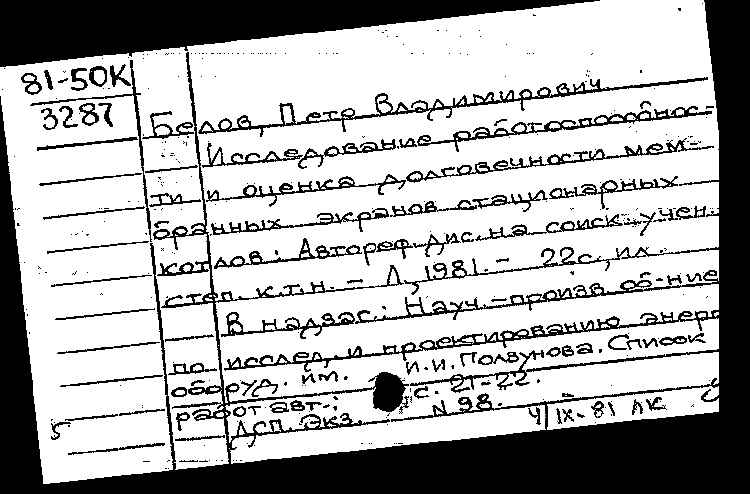 81-50К
3287
Белов, Петр Владимирович.
Исследование работоспособнос-
ти и оценка долговечности мем-
бранных экранов стационарных
котлов: Автореф. дис. на соиск. учен.
степ. к.т.н. - Л, 1981. - 22с., ил.
В надзаг.: Науч.-произв об-ние
по исслед. и проектированию энерг
оборуд. им. И.И. Ползунова. Список
работ авт.: с. 21-22.
ДСП. Экз. N 98.
5 4/IX-81 ЛК